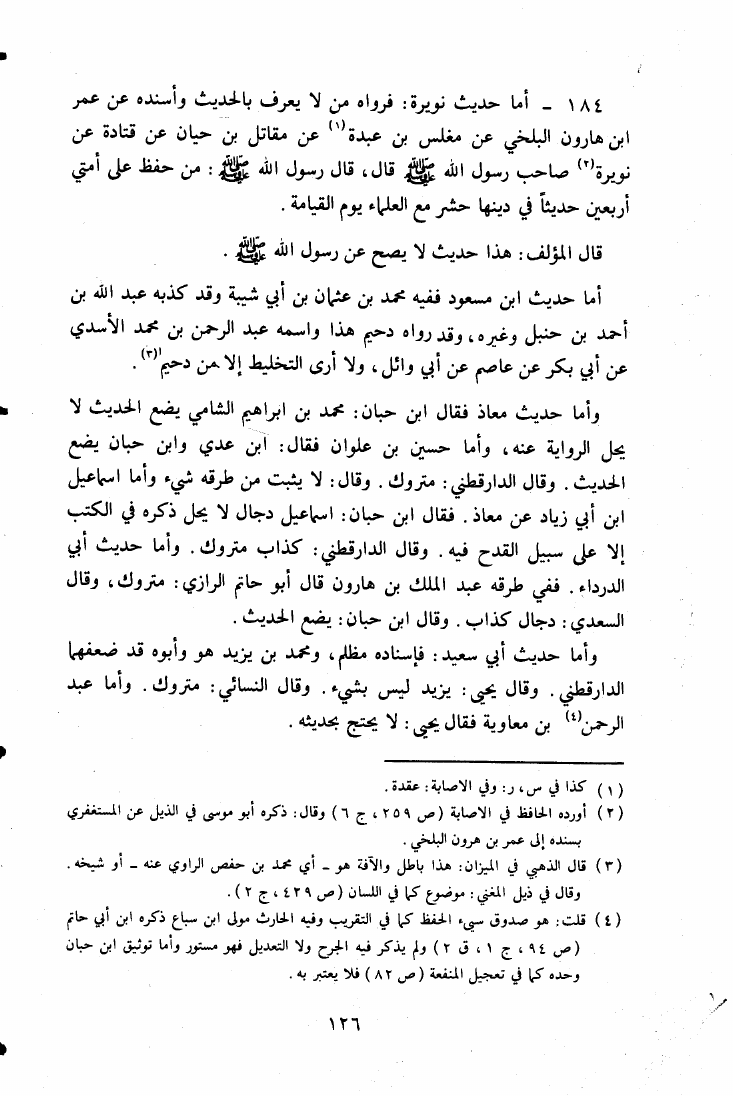 ١٨٤ ـ أما حديث نويرة: فرواه من لا يعرف بالحديث وأسنده عن عمر
ابن هارون البلخي عن مغلس بن عبدة(١) عن مقاتل بن حيان عن قتادة عن
نويرة(٢) صاحب رسول الله ﷺ قال، قال رسول الله ﷺ: من حفظ على أمتي
أربعين حديثاً في دينها حشر مع العلماء يوم القيامة.
قال المؤلف: هذا حديث لا يصح عن رسول الله ﷺ.
أما حديث ابن مسعود ففيه محمد بن عثمان بن أبي شيبة وقد كذبه عبد الله بن
أحمد بن حنبل وغيره، وقد رواه دحيم هذا واسمه عبد الرحمن بن محمد الأسدي
عن أبي بكر عن عاصم عن أبي وائل، ولا أرى التخليط إلا من دحيم(٣).
وأما حديث معاذ فقال ابن حبان: محمد بن ابراهيم الشامي يضع الحديث لا
يحل الرواية عنه، وأما حسين بن علوان فقال: ابن عدي وابن حبان يضع
الحديث. وقال الدارقطني: متروك. وقال: لا يثبت من طرقه شيء وأما اسماعيل
ابن أبي زياد عن معاذ. فقال ابن حبان: اسماعيل دجال لا يحل ذكره في الكتب
إلا على سبيل القدح فيه. وقال الدارقطني: كذاب متروك. وأما حديث أبي
الدرداء. ففي طرقه عبد الملك بن هارون قال أبو حاتم الرازي: متروك، وقال
السعدي: دجال كذاب. وقال ابن حبان: يضع الحديث.
وأما حديث أبي سعيد: فإسناده مظلم، ومحمد بن يزيد هو وأبوه قد ضعفهما
الدارقطني. وقال يحيى: يزيد ليس بشيء. وقال النسائي: متروك. وأما عبد
الرحمن(٤) بن معاوية فقال يحيى: لا يحتج بحديثه.
(١) كذا في س، ر: وفي الاصابة: عقدة.
(٢) أورده الحافظ في الاصابة (ص ٢٥٩، ج ٦) وقال: ذكره أبو موسى في الذيل عن المستغفري
بسنده إلى عمر بن هرون البلخي.
(٣) قال الذهبي في الميزان: هذا باطل والآفة هو ـ أي محمد بن حفص الراوي عنه ـ أو شيخه.
وقال في ذيل المغني: موضوع كما في اللسان (ص ٤٢٩، ج ٢).
(٤) قلت: هو صدوق سيء الحفظ كما في التقريب وفيه الحارث مولى ابن سباع ذكره ابن أبي حاتم
(ص ٩٤، ج ١، ق ٢) ولم يذكر فيه الجرح ولا التعديل فهو مستور وأما توثيق ابن حبان
وحده كما في تعجيل المنفعة (ص ٨٢) فلا يعتبر به.
١٢٦